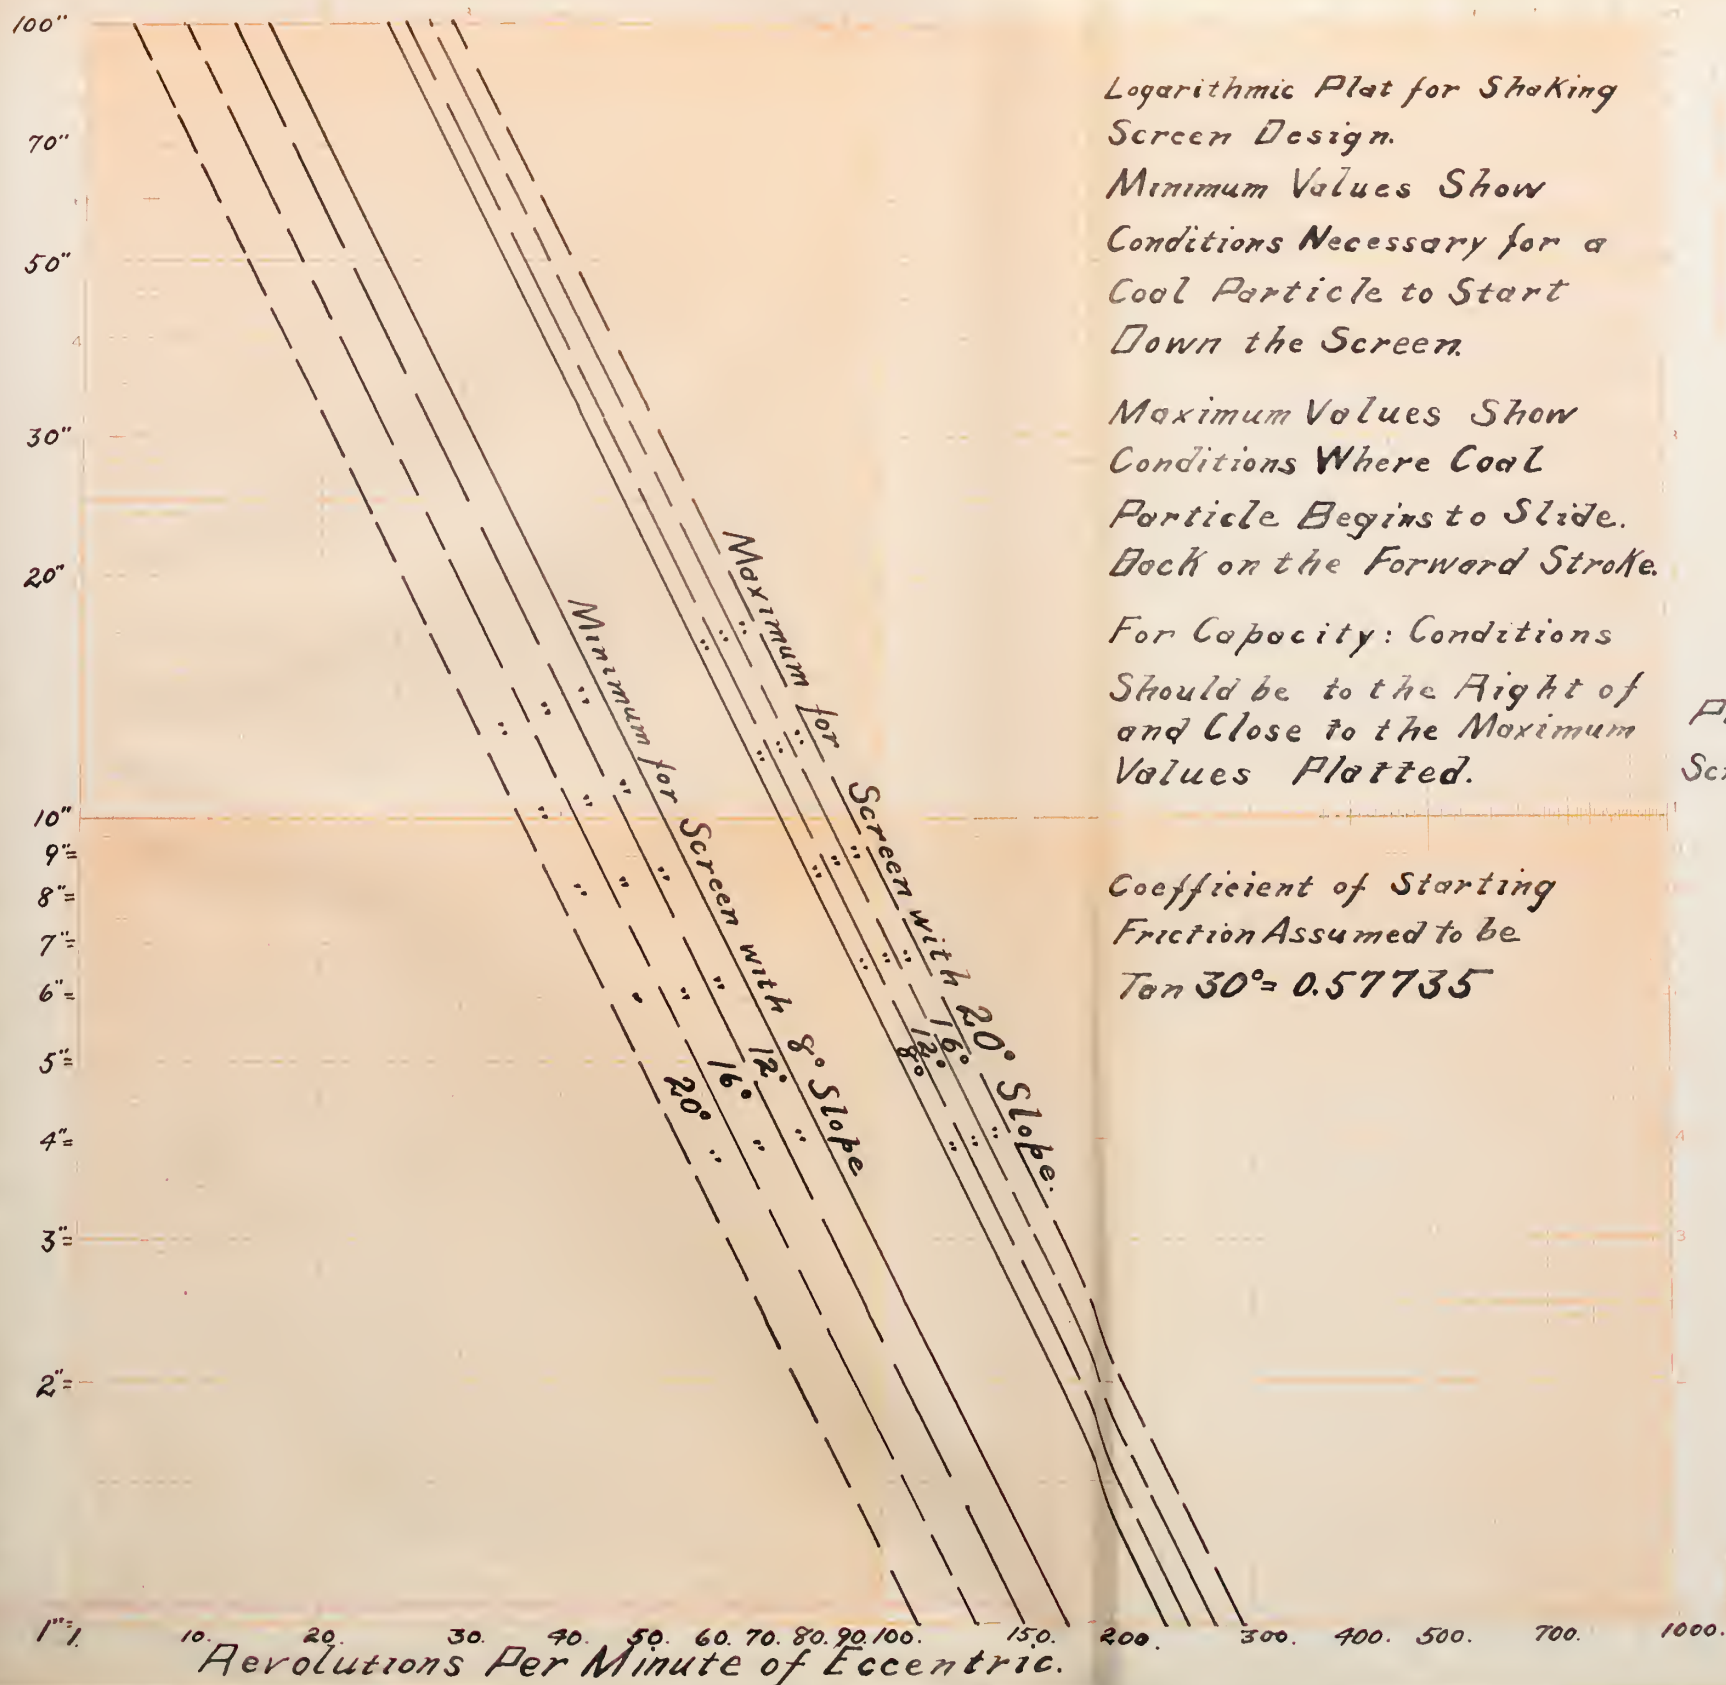 100"
70"
50"
30"
20"
10"
9"=
8"=
7"=
6"=
5"=
4"=
3"=
2"=
1"=
Logarithmic Plat for Shaking
Screen Design.
Minimum Values Show
Conditions Necessary for a
Coal Particle to Start
Down the Screen.
Maximum Values Show
Conditions Where Coal
Particle Begins to Slide.
Back on the Forward Stroke.
For Capacity: Conditions
Should be to the Right of
and Close to the Maximum
Values Platted.
Coefficient of Starting
Friction Assumed to be
Tan 30°= 0.57735
Maximum for Screen with 20° Slope.
" " " " 16° "
" " " " 12° "
" " " " 8° "
Minimum for Screen with 8° Slope
" " " " 12° "
" " " " 16° "
" " " " 20° "
1. 10. 20. 30. 40. 50. 60. 70. 80. 90. 100. 150. 200. 300. 400. 500. 700. 1000.
Revolutions Per Minute of Eccentric.